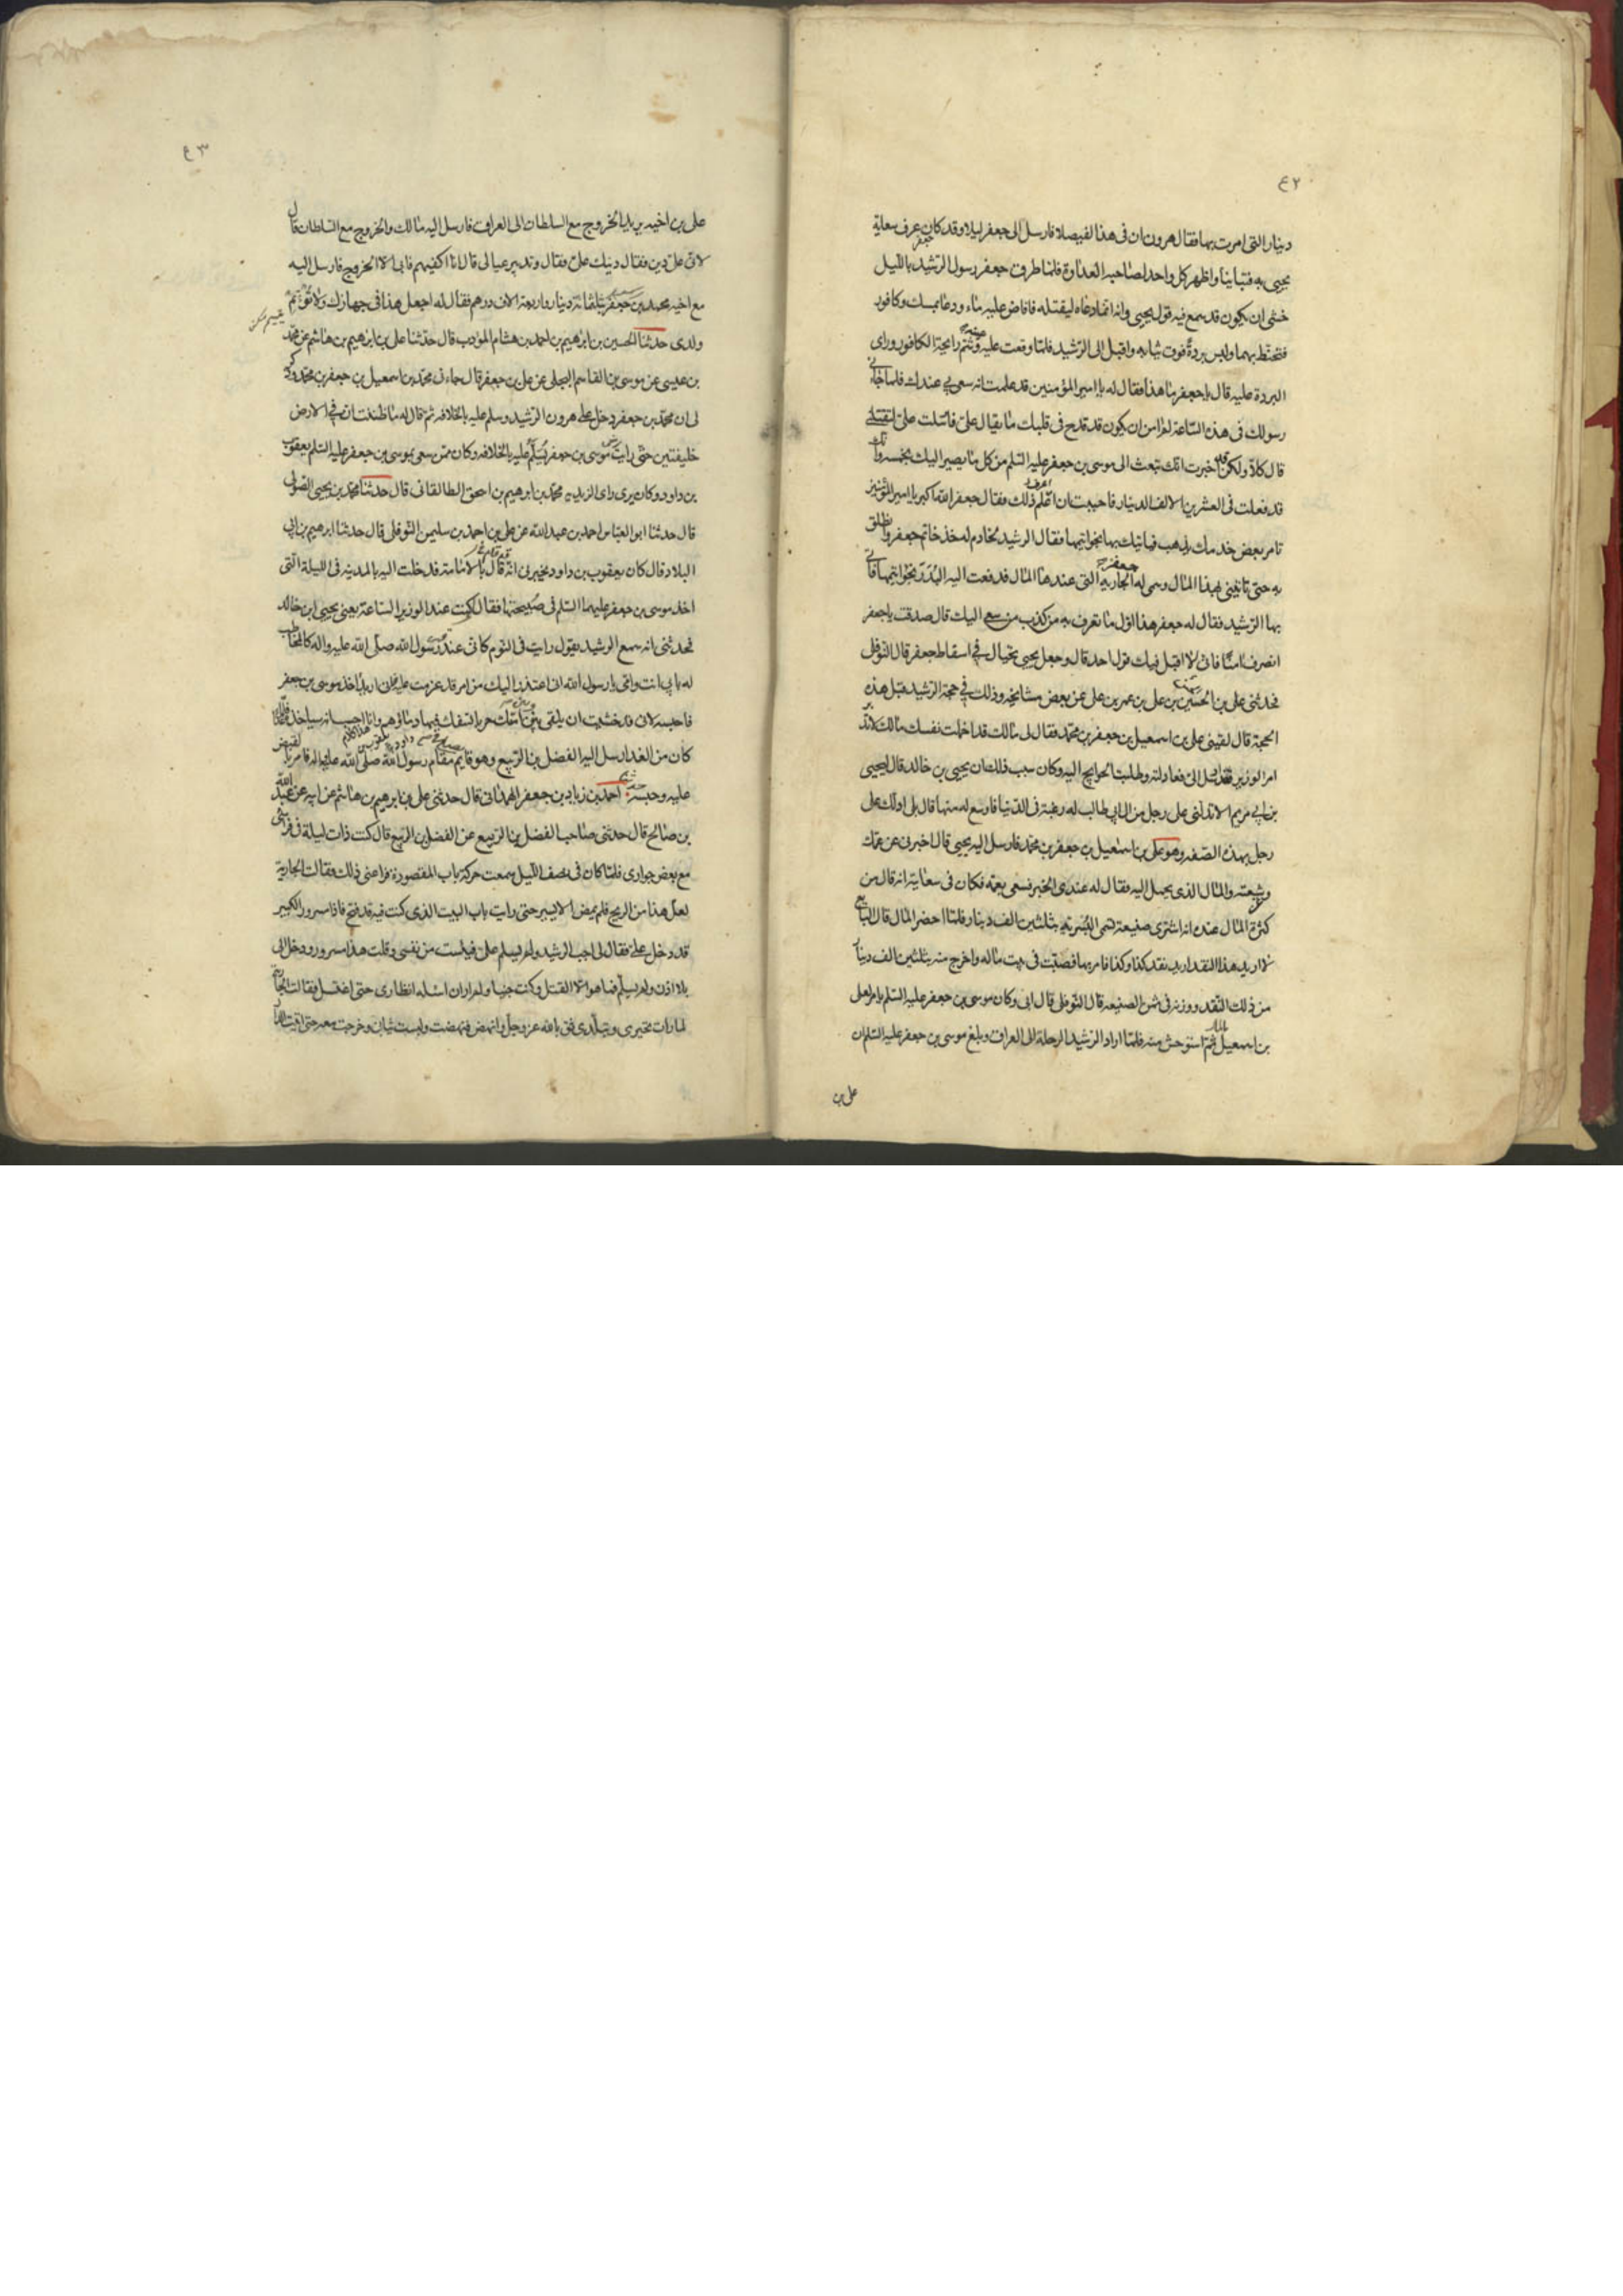 ٤٢
دينار التى امرت بها فقال هرون ان فى هذا لفيصلا فارسل الى جعفر ليلا وقد كان عرف سعاية
يحيى به فتباينا واظهر كل واحد لصاحبه العداوة فلما طرق جعفر رسول الرشيد بالليل
خشى ان يكون قد سمع فيه قول يحيى وانه انما دعاه ليقتله فافاض عليه ماء ودعا بمسك وكافور
فتحنط بهما ولبس بردة فوق ثيابه واقبل الى الرشيد فلما وقعت عليه عينه وشم رائحة الكافور وراى
البردة عليه قال يا جعفر ما هذا فقال له يا امير المؤمنين قد علمت انه سعى بى عندك فلما جائنى
رسولك فى هذه الساعة لم امن ان يكون قد قدح فى قلبك ما يقال على فارسلت الى لتقتلنى
قال كلا ولكن قد خبرت انك تبعث الى موسى بن جعفر عليه السلم من كل ما يصير اليك بخمسه وانك
قد فعلت فى العشرين الالف الدينار فاحببت ان اعلم ذلك فقال جعفر الله اكبر يا امير المؤمنين
تامر بعض خدمك يذهب فياتيك بها بخواتيمها فقال الرشيد لخادم له خذ خاتم جعفر وانطلق
به حتى تاتينى بهذا المال وسمى له جعفر الجارية التى عندها المال فدفعت اليه البدر بخواتيمها فاتى
بها الرشيد فقال له جعفر هذا اول ما تعرف به من كذب من سعى اليك قال صدقت يا جعفر
انصرف امنا فانى لا اقبل فيك قول احد قال وجعل يحيى يحتال فى اسقاط جعفر قال النوفلى
فحدثنى على بن الحسين بن على بن عمر بن على عن بعض مشايخه وذلك فى حجة الرشيد قبل هذه
الحجة قال لقينى على بن اسمعيل بن جعفر بن محمد فقال لى مالك قد اخملت نفسك مالك لا تدبر
امر الوزير فقد ارسل الى فعادلته وطلبت الحوايج اليه وكان سبب ذلك ان يحيى بن خالد قال ليحيى
بن ابى مريم الا تدلنى على رجل من ال ابى طالب له رغبة فى الدنيا فاوسع له منها قال بلى ادلك على
رجل بهذه الصفه وهو على بن اسمعيل بن جعفر بن محمد فارسل اليه يحيى قال اخبرنى عن عمك
وعن شيعته والمال الذى يحمل اليه فقال له عندى الخبر فسعى بعمه فكان فى سعايته انه قال من
كثرة المال عنده انه اشترى ضيعة تسمى البسرية بثلثين الف دينار فلما احضر المال قال البايع
لا اريد هذا النقد اريد نقد كذا وكذا فامر بها فصبت فى بيت ماله واخرج منه بثلثين الف دينار
من ذلك النقد ووزنه فى ثمن الضيعه قال النوفلى قال ابى وكان موسى بن جعفر عليه السلم يامر لعلى
بن اسمعيل بالمال ثم استوحش منه فلما اراد الرشيد الرحلة الى العراق وبلغ موسى بن جعفر عليه السلم ان
على بن
٤٣
على بن اخيه يريد الخروج مع السلطان الى العراق فارسل اليه مالك والخروج مع السلطان قال
لان على دين فقال دينك على فقال وتدبير عيالى قال انا اكفيهم فابى الا الخروج فارسل اليه
مع اخيه محمد بن جعفر بثلثمائة دينار واربعة الاف درهم فقال له اجعل هذا فى جهازك ولا تؤتم
ولدى حدثنا الحسين بن ابرهيم بن احمد بن هشام المؤدب قال حدثنا على بن ابرهيم بن هاشم عن محمد
بن عيسى عن موسى بن القاسم البجلى عن على بن جعفر قال جاءنى محمد بن اسمعيل بن جعفر بن محمد وذكر
لى ان محمد بن جعفر دخل على هرون الرشيد وسلم عليه بالخلافه ثم قال له ما ظننت ان فى الارض
خليفتين حتى رايت موسى بن جعفر يسلم عليه بالخلافه وكان ممن سعى بموسى بن جعفر عليه السلم يعقوب
بن داود وكان يرى راى الزيديه محمد بن ابرهيم بن اسحق الطالقانى قال حدثنا محمد بن يحيى الصولى
قال حدثنا ابو العباس احمد بن عبد الله عن على بن احمد بن سليمن النوفلى قال حدثنا ابرهيم بن ابى
البلاد قال كان يعقوب بن داود يخبرنى انه قد قال بالامامة فدخلت اليه بالمدينه فى الليلة التى
اخذ موسى بن جعفر عليهما السلم فى صبيحتها فقال كنت عند الوزير الساعة يعنى يحيى ابن خالد
فحدثنى انه سمع الرشيد يقول رايت فى النوم كانى عند رسول الله صلى الله عليه واله كالمخاطب
له بابى انت وامى يا رسول الله انى اعتذر اليك من امر قد عزمت عليه فانى اريد اخذ موسى بن جعفر
فاحبسه لانى قد خشيت ان يلقى بين امتك حربا تسفك فيها دماؤهم وانا احسب انه سياخذه غدا فلما
كان من الغد ارسل اليه الفضل بن الربيع وهو قايم مقام رسول الله صلى الله عليه واله فامر بالقبض
عليه وحبسه احمد بن زياد بن جعفر الهمدانى قال حدثنى على بن ابرهيم بن هاشم عن ابيه عن عبد الله
بن صالح قال حدثنى صاحب الفضل بن الربيع عن الفضل بن الربيع قال كنت ذات ليلة فى فراشى
مع بعض جوارى فلما كان فى نصف الليل سمعت حركة باب المقصورة فراعنى ذلك فقالت الجارية
لعل هذا من الريح فلم يمض الا يسير حتى رايت باب البيت الذى كنت فيه قد فتح فاذا مسرور الكبير
قد دخل على فقال لى اجب الرشيد ولم يسلم على فيئست من نفسى وقلت هذا مسرور ودخل الى
بلا اذن ولم يسلم فما هو الا القتل وكنت جنبا ولم اران اسئله انظارى حتى اغتسل فقالت الجارية
لما رات تحيرى وتبلدى ثق بالله عز وجل وانهض فنهضت ولبست ثيابى وخرجت معه حتى اتيت الدار